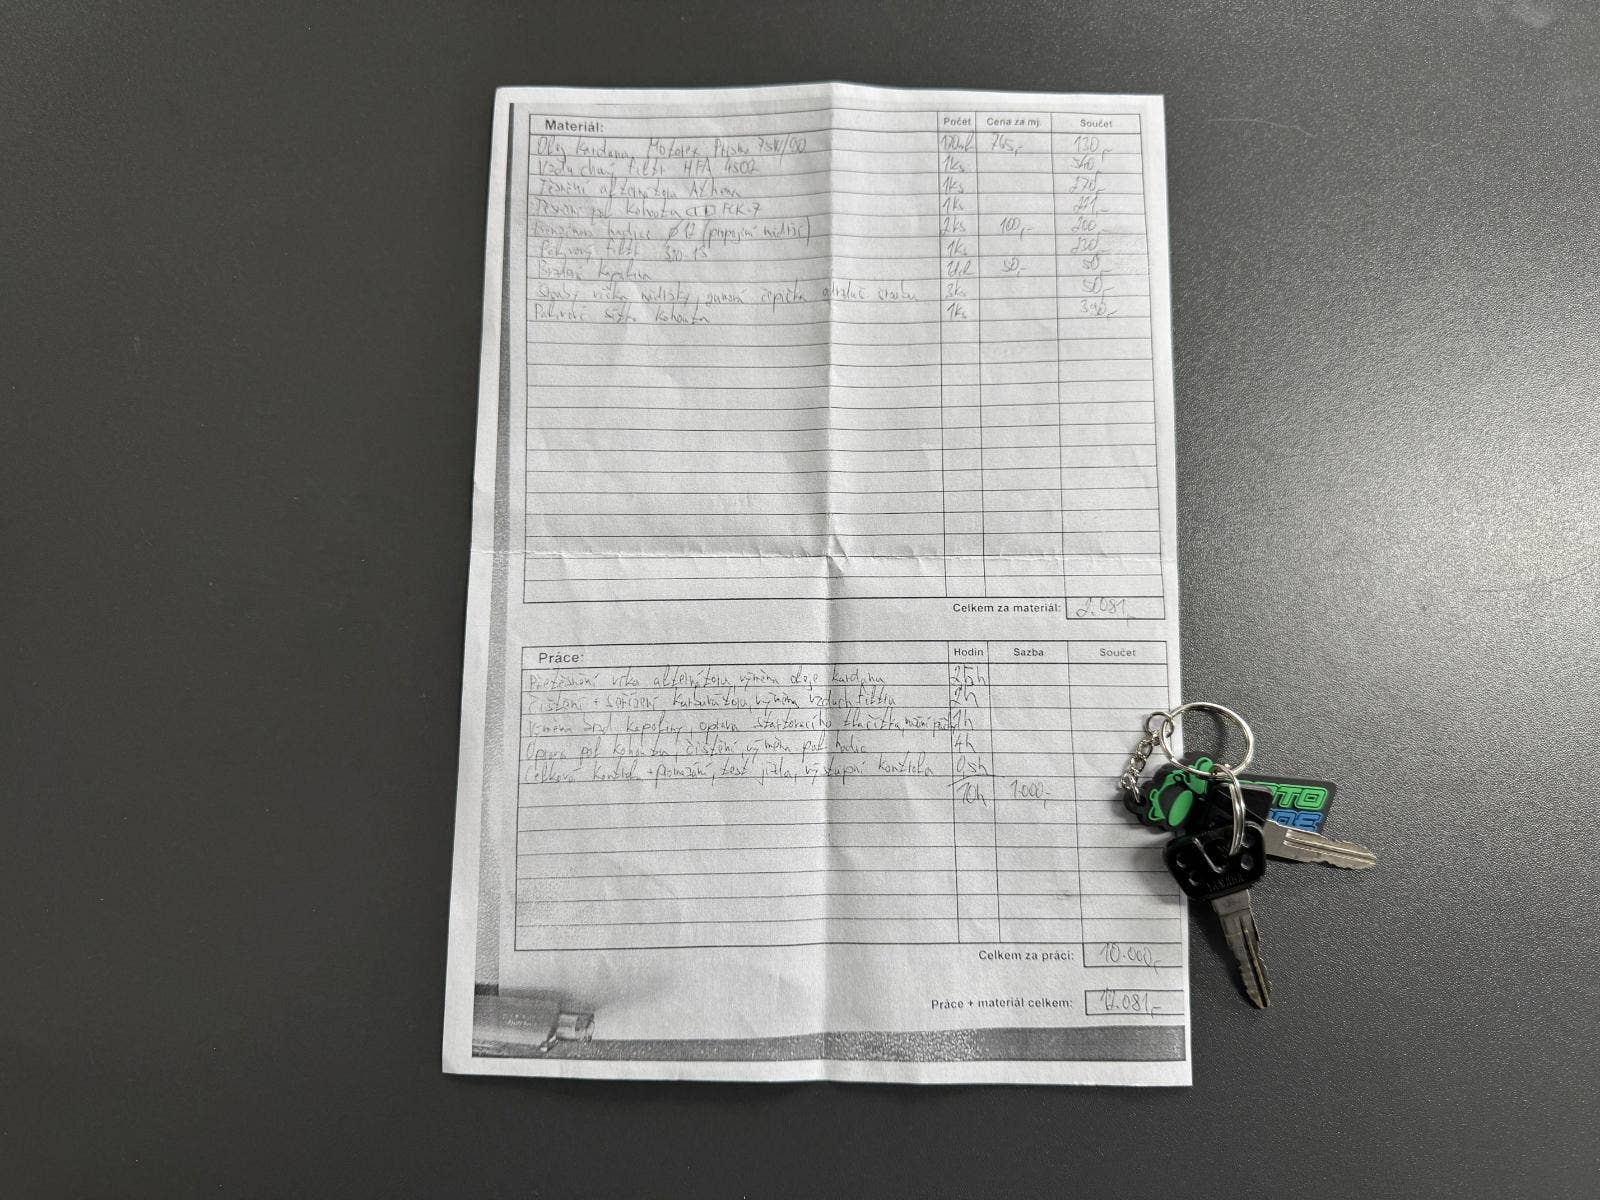 Materiál: Počet Cena za mj. Součet
Olej kardanu Motorex 75W/90 120ml 745,- 130,-
Vzduchový filtr HFA 4502 1ks 540,-
Těsnění alternátoru Athena 1ks 270,-
Těsnění pal kohoutu FCK-7 1ks 221,-
Benzínová hadice Ø12 (propojení nádrží) 2ks 100,- 200,-
Palivový filtr 1ks 230,-
Brzdová kapalina 50,- 50,-
Šrouby víčka nádržky, gumová čepička šroubu 3ks 50,-
Palivové sítko kohoutu 1ks 390,-
Celkem za materiál: 2.081,-
Práce: Hodin Sazba Součet
Přetěsnění víka alternátoru, výměna oleje kardanu 2,5h
Čištění + seřízení karburátoru, výměna vzduch filtru 2h
Výměna brzd. kapaliny, oprava startovacího tlačítka, 1h
Oprava pal kohoutu, čištění, výměna pal hadic 4h
Celková kontrola + promazání, test jízda, výstupní kontrola 0,5h
10h 1.000,-
Celkem za práci: 10.000,-
Práce + materiál celkem: 12.081,-